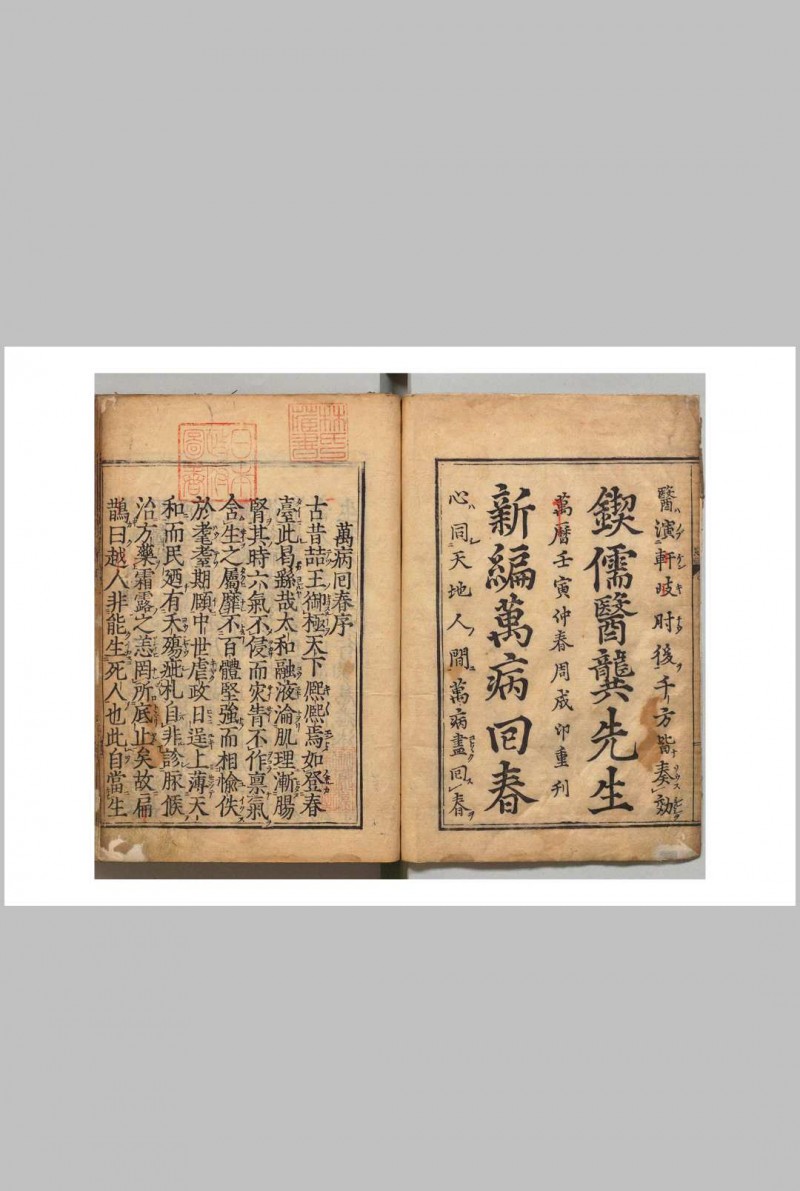 醫演軒岐肘後千方皆奏効
鍥儒醫龔先生
萬曆壬寅仲春周成印重刊
新編萬病回春
心同天地人間萬病盡回春
萬病回春序
古昔喆王御極天下熈熈焉如登春
臺此曷繇哉太和融液淪肌理漸腸
腎其時六氣不侵而灾眚不作禀氣
含生之屬靡不百體堅強而相愉佚
於耄耋期頤中世虐政日逞上薄天
和而民廼有夭殤疵札自非診脉候
治方藥霜露之恙罔所底止矣故扁
鵲曰越人非能生死人也此自當生
林氏藏書
日本政府圖書